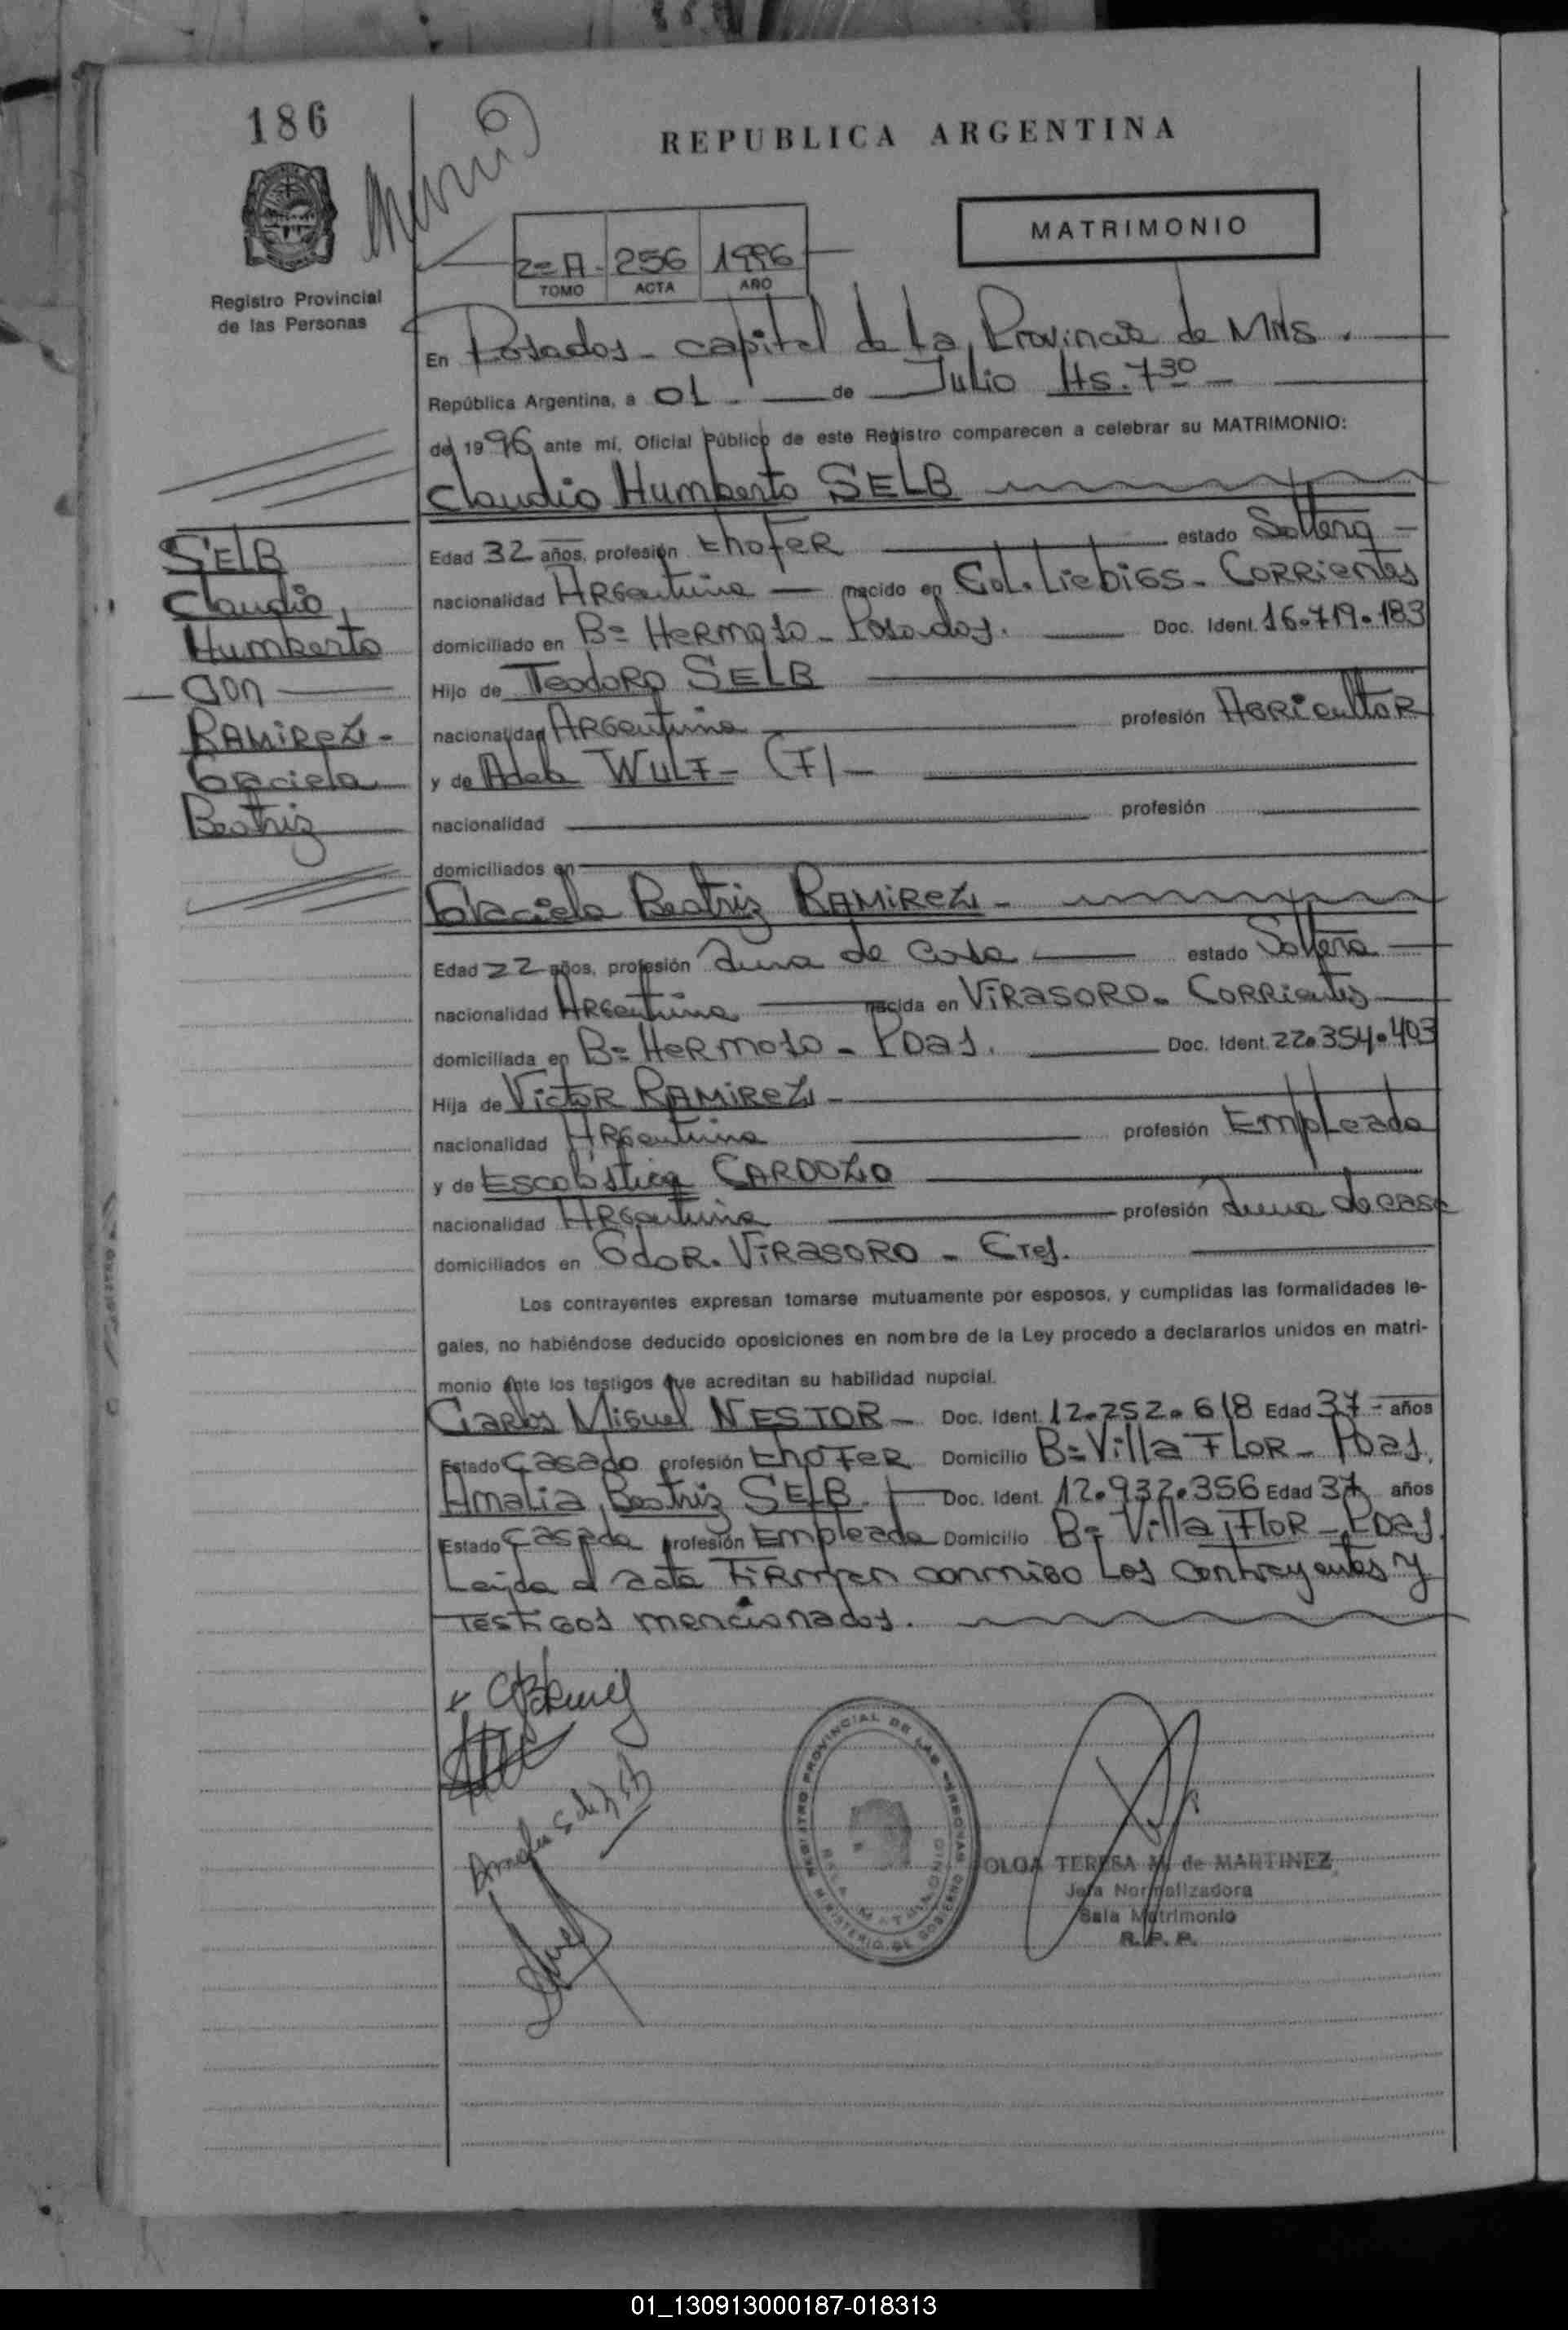 186
REPUBLICA ARGENTINA
MATRIMONIO
2º A - 256 1996
TOMO ACTA AÑO
Registro Provincial
de las Personas
En Posadas - capital de la Provincia de Mns.
República Argentina, a 01 - de Julio Hs. 7 30 -
del 1996 ante mí, Oficial Público de este Registro comparecen a celebrar su MATRIMONIO:
Claudio Humberto SELB
SELB
Claudio
Humberto
con
RAMIREZ -
Graciela
Beatriz
Edad 32 años, profesión chofer estado Soltero
nacionalidad Argentina nacido en Col. Liebigs - Corrientes
domiciliado en Bº Hermoso - Posadas. Doc. Ident. 16.719.183
Hijo de Teodoro SELB
nacionalidad Argentina profesión Agricultor
y de Adela WULF - (F) -
nacionalidad profesión
domiciliados en
Graciela Beatriz RAMIREZ -
Edad 22 años, profesión ama de casa estado Soltera
nacionalidad Argentina nacida en Virasoro - Corrientes
domiciliada en Bº Hermoso - Pdas. Doc. Ident. 22.354.403
Hija de Victor RAMIREZ -
nacionalidad Argentina profesión Empleado
y de Escolástica CARDOZO
nacionalidad Argentina profesión ama de casa
domiciliados en Gdor. Virasoro - Ctes.
Los contrayentes expresan tomarse mutuamente por esposos, y cumplidas las formalidades le-
gales, no habiéndose deducido oposiciones en nombre de la Ley procedo a declararlos unidos en matri-
monio ante los testigos que acreditan su habilidad nupcial.
Carlos Miguel NESTOR - Doc. Ident. 12.252.618 Edad 37 - años
Estado Casado profesión chofer Domicilio Bº Villa Flor - Pdas.
Amalia Beatriz SELB. Doc. Ident. 12.932.356 Edad 37 años
Estado Casada profesión Empleada Domicilio Bº Villa Flor - Pdas.
Leída el acta Firman conmigo Los contrayentes y
testigos mencionados.
REGISTRO PROVINCIAL DE LAS PERSONAS
MINISTERIO DE GOBIERNO
SALA MATRIMONIO
OLGA TERESA M. de MARTINEZ
Jefa Normalizadora
Sala Matrimonio
R. P. P.
01_130913000187-018313